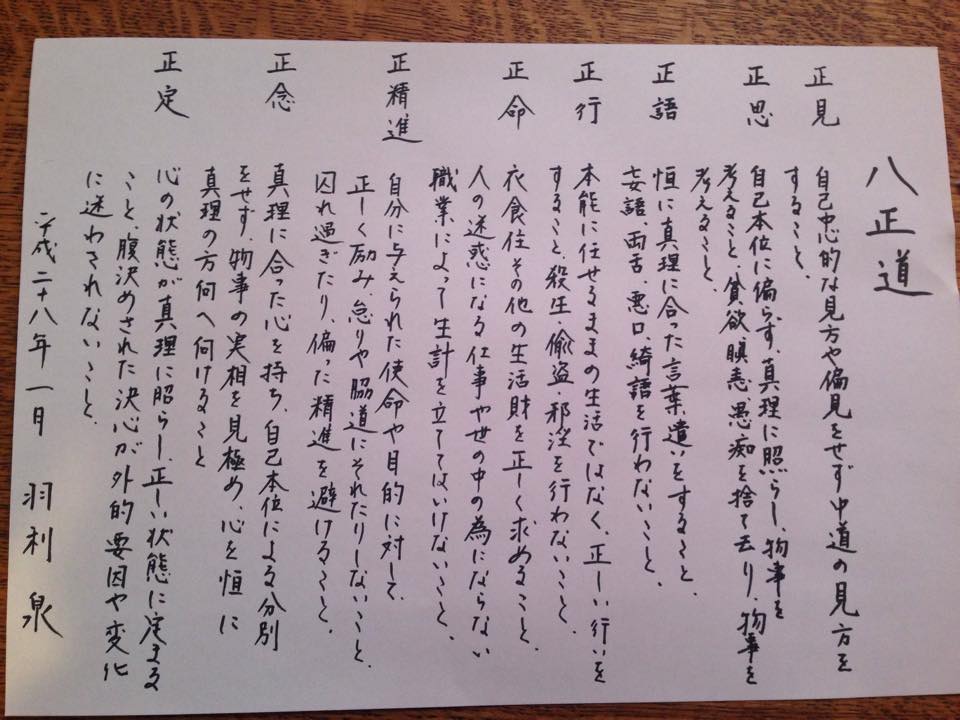 八正道
正見
自己中心的な見方や偏見をせず中道の見方を
すること、
正思
自己本位に偏らず、真理に照らし、物事を
考えること、貧欲、瞋恚、愚痴を捨て去り、物事を
考えること、
正語
恒に真理に合った言葉遣いをすること、
妄語、両舌、悪口、綺語を行わないこと、
正行
本能に任せるままの生活ではなく、正しい行いを
すること、殺生・偸盗・邪淫を行わないこと、
正命
衣食住その他の生活財を正しく求めること、
人の迷惑になる仕事や世の中の為にならない
職業によって生計を立ててはいけないこと、
正精進
自分に与えられた使命や目的に対して、
正しく励み、怠りや脇道にそれたりしないこと、
囚れ過ぎたり、偏った精進を避けること、
正念
真理に合った心を持ち、自己本位による分別
をせず、物事の実相を見極め、心を恒に
真理の方向へ向けること
正定
心の状態が真理に照らし、正しい状態に定まる
こと、腹決めされた決心が外的要因や変化
に迷わされないこと、
平成二十八年一月 羽利泉